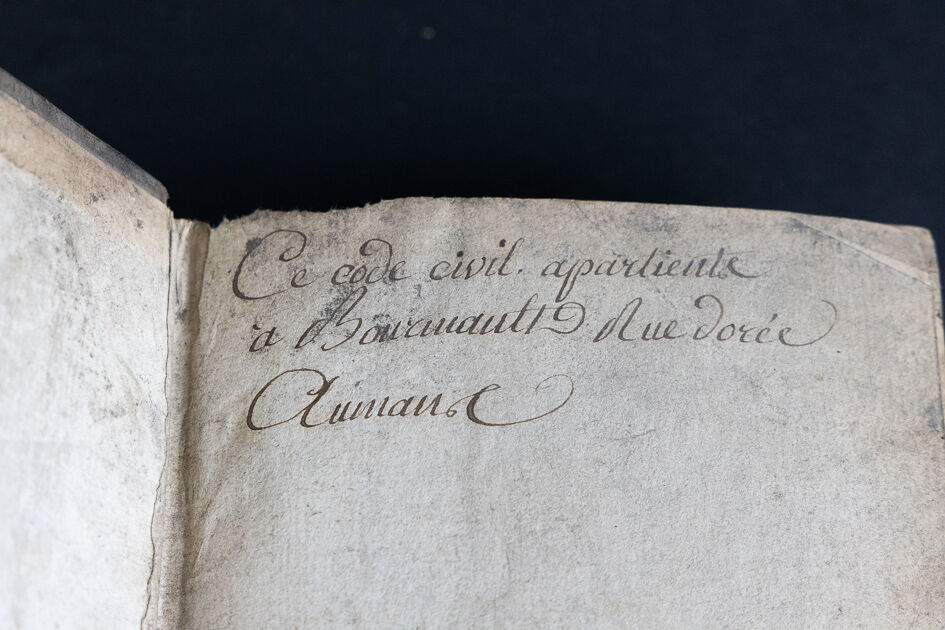 Ce code civil. apartient
a Bournault Rue dorée
Aumans